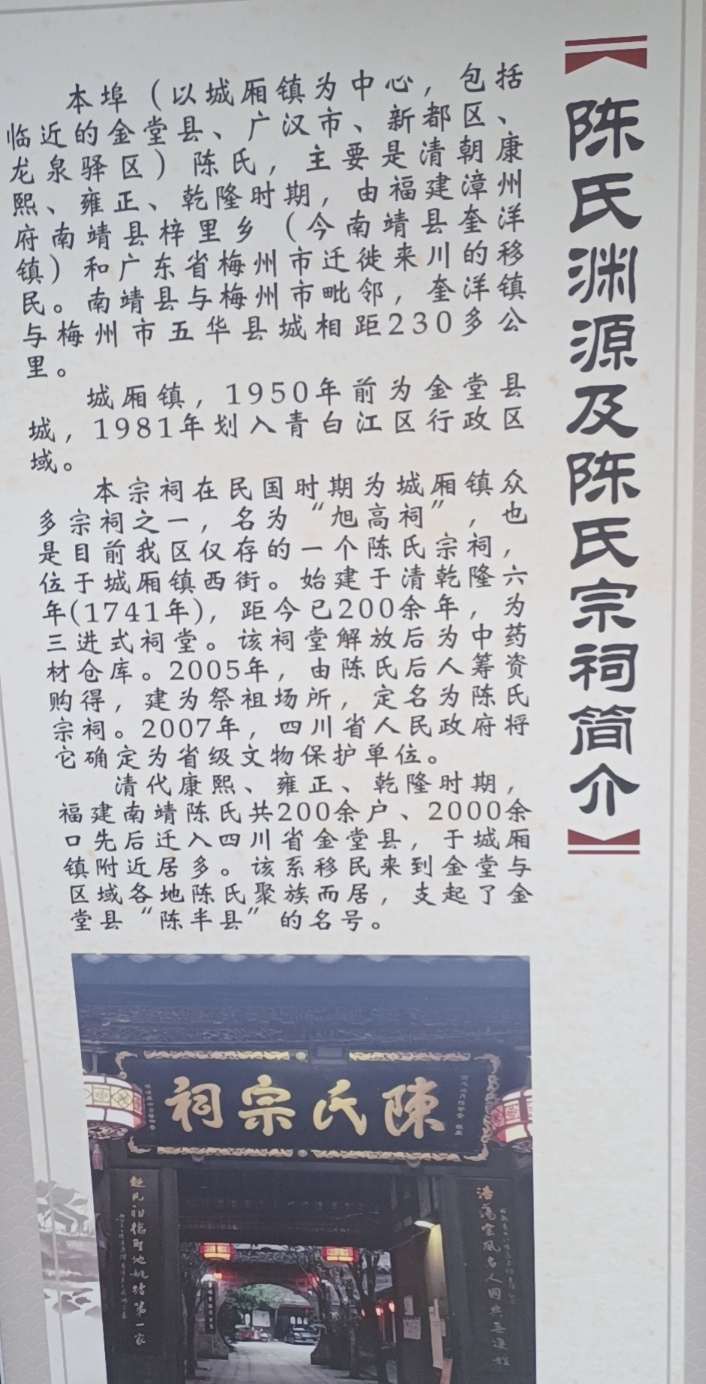 陈氏渊源及陈氏宗祠简介
本埠（以城厢镇为中心，包括
临近的金堂县、广汉市、新都区、
龙泉驿区）陈氏，主要是清朝康
熙、雍正、乾隆时期，由福建漳州
府南靖县梓里乡（今南靖县奎洋
镇）和广东省梅州市迁徙来川的移
民。南靖县与梅州市毗邻，奎洋镇
与梅州市五华县城相距230多公
里。
城厢镇，1950年前为金堂县
城，1981年划入青白江区行政区
域。
本宗祠在民国时期为城厢镇众
多宗祠之一，名为“旭高祠”，也
是目前我区仅存的一个陈氏宗祠，
位于城厢镇西街。始建于清乾隆六
年(1741年)，距今已200余年，为
三进式祠堂。该祠堂解放后为中药
材仓库。2005年，由陈氏后人筹资
购得，建为祭祖场所，定名为陈氏
宗祠。2007年，四川省人民政府将
它确定为省级文物保护单位。
清代康熙、雍正、乾隆时期，
福建南靖陈氏共200余户、2000余
口先后迁入四川省金堂县，于城厢
镇附近居多。该系移民来到金堂与
区域各地陈氏聚族而居，支起了金
堂县“陈半县”的名号。
陳氏宗祠